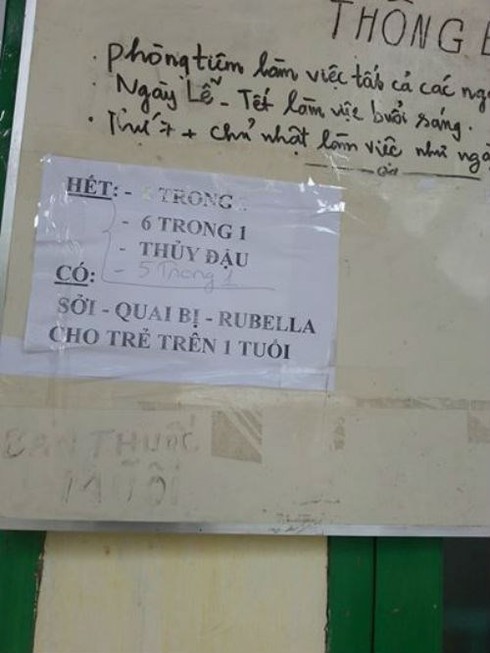 THÔNG B
. Phòng tiêm làm việc tất cả các ng
. Ngày Lễ - Tết làm việc buổi sáng.
. Thứ 7 + chủ nhật làm việc như ngà
HẾT: - TRONG
- 6 TRONG 1
- THỦY ĐẬU
- 5 Trong 1
CÓ:
SỞI - QUAI BỊ - RUBELLA
CHO TRẺ TRÊN 1 TUỔI
BÁN THUỐC
MUỖI